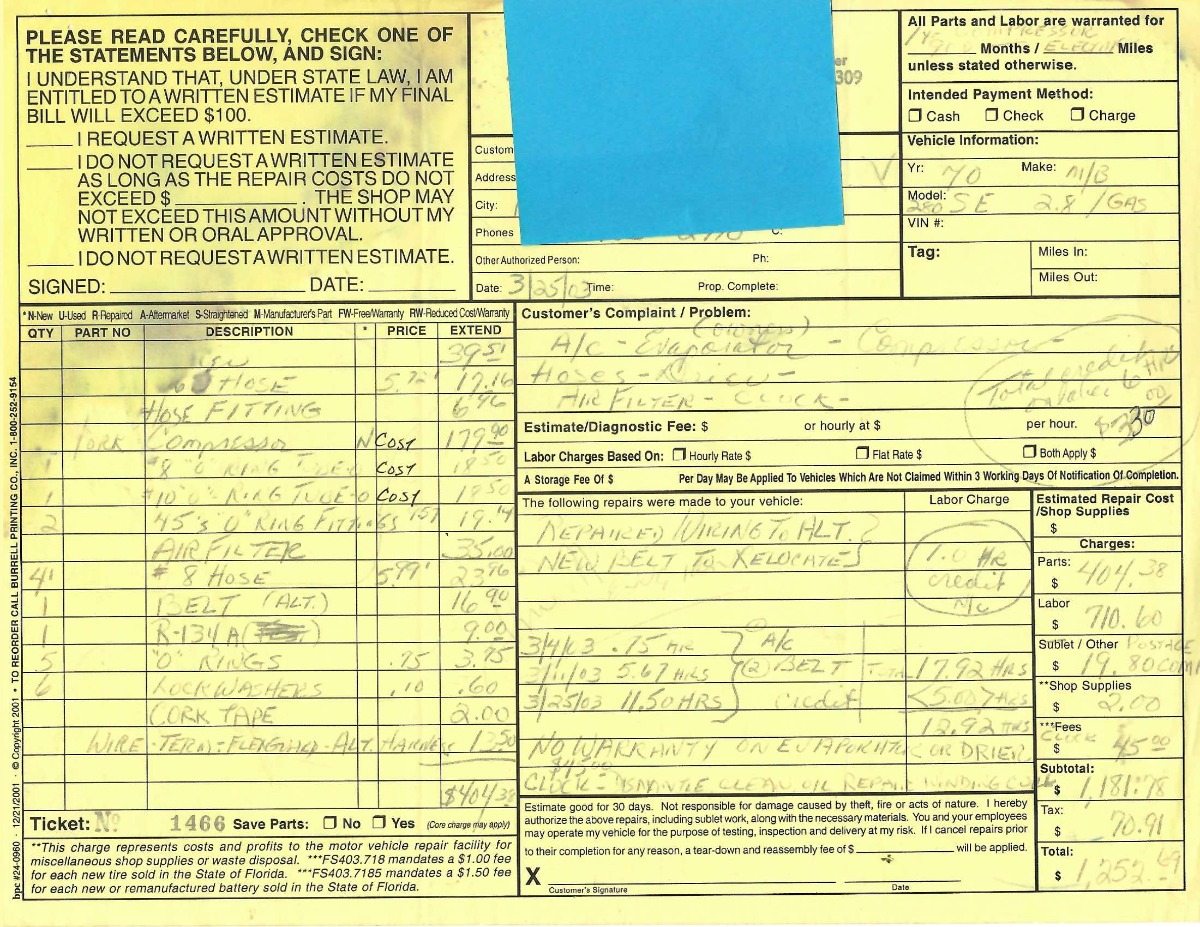 PLEASE READ CAREFULLY, CHECK ONE OF
THE STATEMENTS BELOW, AND SIGN:
I UNDERSTAND THAT, UNDER STATE LAW, I AM
ENTITLED TO A WRITTEN ESTIMATE IF MY FINAL
BILL WILL EXCEED $100.
____ I REQUEST A WRITTEN ESTIMATE.
____ I DO NOT REQUEST A WRITTEN ESTIMATE
AS LONG AS THE REPAIR COSTS DO NOT
EXCEED $ ____________ . THE SHOP MAY
NOT EXCEED THIS AMOUNT WITHOUT MY
WRITTEN OR ORAL APPROVAL.
____ I DO NOT REQUEST A WRITTEN ESTIMATE.
SIGNED: ____________ DATE: ________
er
309
Custom
Address
City:
Phones C:
Other Authorized Person: Ph:
Date: 3/25/03 Time: Prop. Complete:
All Parts and Labor are warranted for
1 yr COMPRESSOR
Months / Miles
unless stated otherwise.
Intended Payment Method:
Cash Check Charge
Vehicle Information:
Yr: 70 Make: M/B
Model: 280 SE 2.8 / GAS
VIN #:
Tag: Miles In:
Miles Out:
*N-New U-Used R-Repaired A-Aftermarket S-Straightened M-Manufacturer's Part FW-Free/Warranty RW-Reduced Cost/Warranty
QTY PART NO DESCRIPTION * PRICE EXTEND
39.51
HOSE 5.72 17.16
HOSE FITTING 6.46
YORK Compressor N Cost 179.90
1 #8 "O" RING TUBE-O Cost 18.50
1 #10 "O" RING TUBE-O Cost 19.50
2 45's "O" RING FITTINGS 957 19.14
AIR FILTER 35.00
4' #8 HOSE 5.99' 23.96
1 BELT (ALT.) 16.90
1 R-134A 9.00
5 "O" RINGS .75 3.75
6 LOCKWASHERS .10 .60
CORK TAPE 2.00
WIRE-TERM-FLEXGUARD-ALT. HARNESS 13.50
$404.38
Customer's Complaint / Problem:
(owners)
A/c - Evaporator - Compressor -
Hoses - Drier -
AIR FILTER - CLOCK -
Total credit
6 HR
$330.00
Estimate/Diagnostic Fee: $ or hourly at $ per hour.
Labor Charges Based On: Hourly Rate $ Flat Rate $ Both Apply $
A Storage Fee Of $ Per Day May Be Applied To Vehicles Which Are Not Claimed Within 3 Working Days Of Notification Of Completion.
The following repairs were made to your vehicle: Labor Charge
REPAIRED WIRING TO ALT.
NEW BELT TO RELOCATE
1.0 HR
credit
N/c
3/4/03 .75 HR A/c
3/11/03 5.67 HRS (2) BELT TOTAL 17.92 HRS
3/25/03 11.50 HRS credit <5.00> HRS
12.92 HRS
NO WARRANTY ON EVAPORATOR OR DRIER
$45.00
CLOCK - DISMANTLE CLEAN OIL REPAIR WINDING COIL
Estimated Repair Cost
/Shop Supplies
$
Charges:
Parts:
$ 404.38
Labor
$ 710.60
Sublet / Other POSTAGE
$ 19.80
**Shop Supplies
$ 2.00
***Fees
CLOCK
$ 45.00
Subtotal:
$ 1,181.78
Tax:
$ 70.91
Total:
$ 1,252.69
Ticket: No 1466 Save Parts: No Yes (Core charge may apply)
**This charge represents costs and profits to the motor vehicle repair facility for
miscellaneous shop supplies or waste disposal. ***FS403.718 mandates a $1.00 fee
for each new tire sold in the State of Florida. ***FS403.7185 mandates a $1.50 fee
for each new or remanufactured battery sold in the State of Florida.
Estimate good for 30 days. Not responsible for damage caused by theft, fire or acts of nature. I hereby
authorize the above repairs, including sublet work, along with the necessary materials. You and your employees
may operate my vehicle for the purpose of testing, inspection and delivery at my risk. If I cancel repairs prior
to their completion for any reason, a tear-down and reassembly fee of $ ____________ will be applied.
X
Customer's Signature Date
bpc #24-0960 · 12/21/2001 · © Copyright 2001 · TO REORDER CALL BURRELL PRINTING CO., INC. 1-800-252-9154